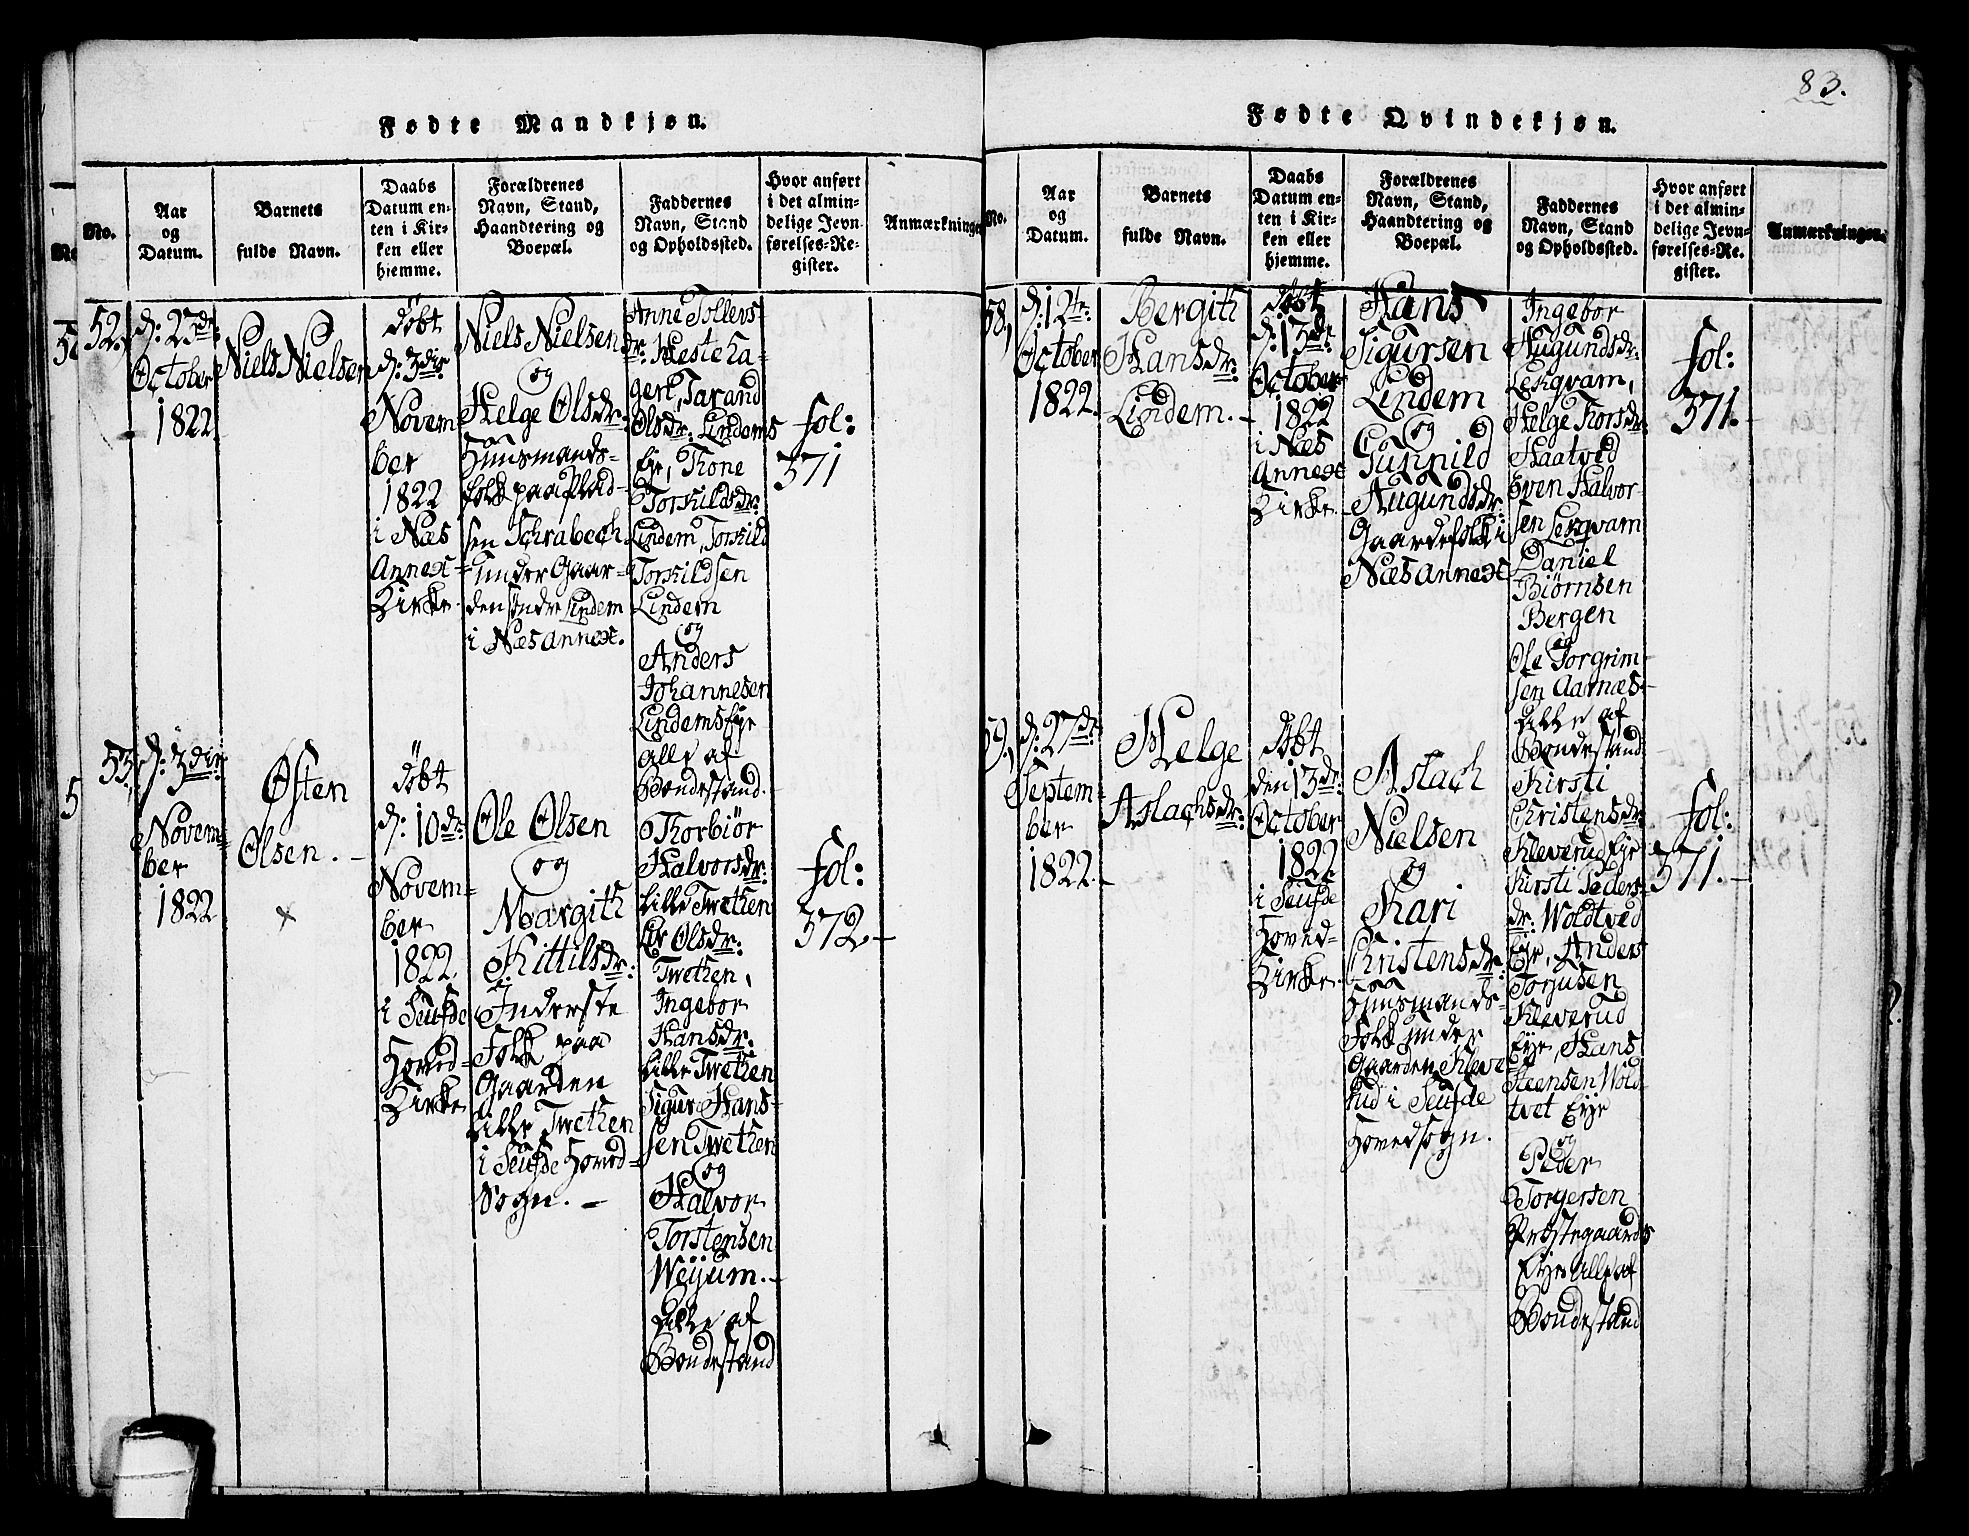 83.
Fødte Mandkjøn.
No.
Aar
og
Datum.
Barnets
fulde Navn.
Daabs
Datum en-
ten i Kir-
ken eller
hjemme.
Forældrenes
Navn, Stand,
Haandtering og
Boepæl.
Faddernes
Navn, Stand
og Opholdssted.
Hvor anført
i det almin-
delige Jevn-
førelses-Re-
gister.
Anmærkninger
52.
d: 23de:
October
1822.
Niels Nielsen
døbt
d: 3die
Novem
ber
1822
i Næs
Annex-
Kirke.
Niels Nielsen
og
Helge Olsdr:
Huusmands-
folk paa Plad-
sen Schrabech
under Gaar-
den søndre Lindem
i Næs Annex.
Anne Tollevs-
dr: Hesteha-
gen, Tarand
Olsdr: Lindems
Eje, Thone
Torkildsdr:
Lindem, Torkild
Torkildsen
Lindem
og
Anders
Johannesen
Lindems Eje
alle af
Bondestand.
fol:
371
53.
d: 3die
Novem-
ber
1822
Østen
Olsen. -
x
døbt
d: 10de
Novem-
ber
1822
i Seufde
Hoved-
Kirke
Ole Olsen
og
Margith
Kittilsdr:
Inderste
Folk paa
Gaarden
Lille Twethen
i Seufde Hoved-
Sogn. -
Thorbiør
Halvorsdr:
Lille Twethen
Liv Olsdr:
Twethen,
Ingebor
Hansdr.
Lille Twethen
Sigur Hans-
sen Twethen
og
Halvor
Torstensen
Weijum.-
Alle af
Bondestand
fol:
372.-
Fødte Qvindekjøn.
No.
Aar
og
Datum.
Barnets
fulde Navn.
Daabs
Datum en-
ten i Kir-
ken eller
hjemme.
Forældrenes
Navn, Stand,
Haandtering og
Boepæl.
Faddernes
Navn, Stand
og Opholdssted.
Hvor anført
i det almin-
delige Jevn-
førelses-Re-
gister.
Anmærkninger.
58.
d: 12te:
October
1822.
Bergith
Hansdr:
Lindem. -
døbt
d: 13de:
October
1822
i Næs
Annex
Kirke.
Hans
Sigursen
Lindem
og
Gunnild
Augundsdr:
Gaardefolk i
Næs Annex
Ingebor
Augundsdr:
Lekqvam,
Helge Thorsdr:
Haatved
Even Halvor-
sen Lekqvam
Daniel
Biørnsen
Bergen
og
Ole Torgrim-
sen Aarnæs-
Alle af
Bondestand
fol:
371.-
59.
d: 27de
Septem-
ber
1822.-
Helge
Aslachsdr:
døbt
den 13de:
October
1822
i Seufde
Hoved-
Kirke.
Aslach
Nielsen
og
Kari
Christensdr:
Huusmands-
Folk under
Gaarden Kleve
rud i Seufde
Hovedsogn.
Kirsti
Christensdr:
Kleverud Eje
Kirsti Peders-
dr: Woldtved
Eje, Anders
Torjusen
Kleverud
Eje, Hans
Steensen Wold
tvet Eje
og
Peder
Torgersen
Præstegaards
Eje alle af
Bondestand
fol:
371.-